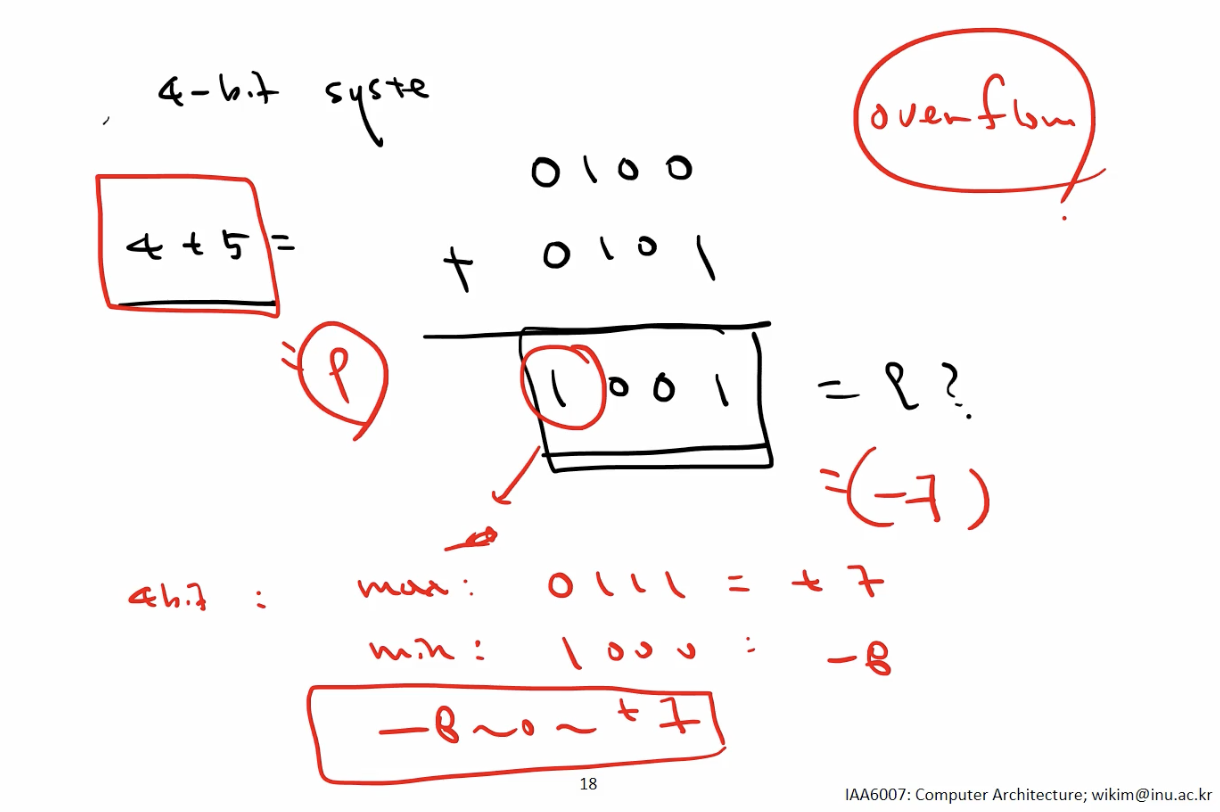 4-bit syste
overflow
0100
4+5=
+ 0101
=9
1001 = 9?
=(-7)
4bit : max: 0111 = +7
min: 1000 : -8
-8~0~+7
18
IAA6007: Computer Architecture; wikim@inu.ac.kr